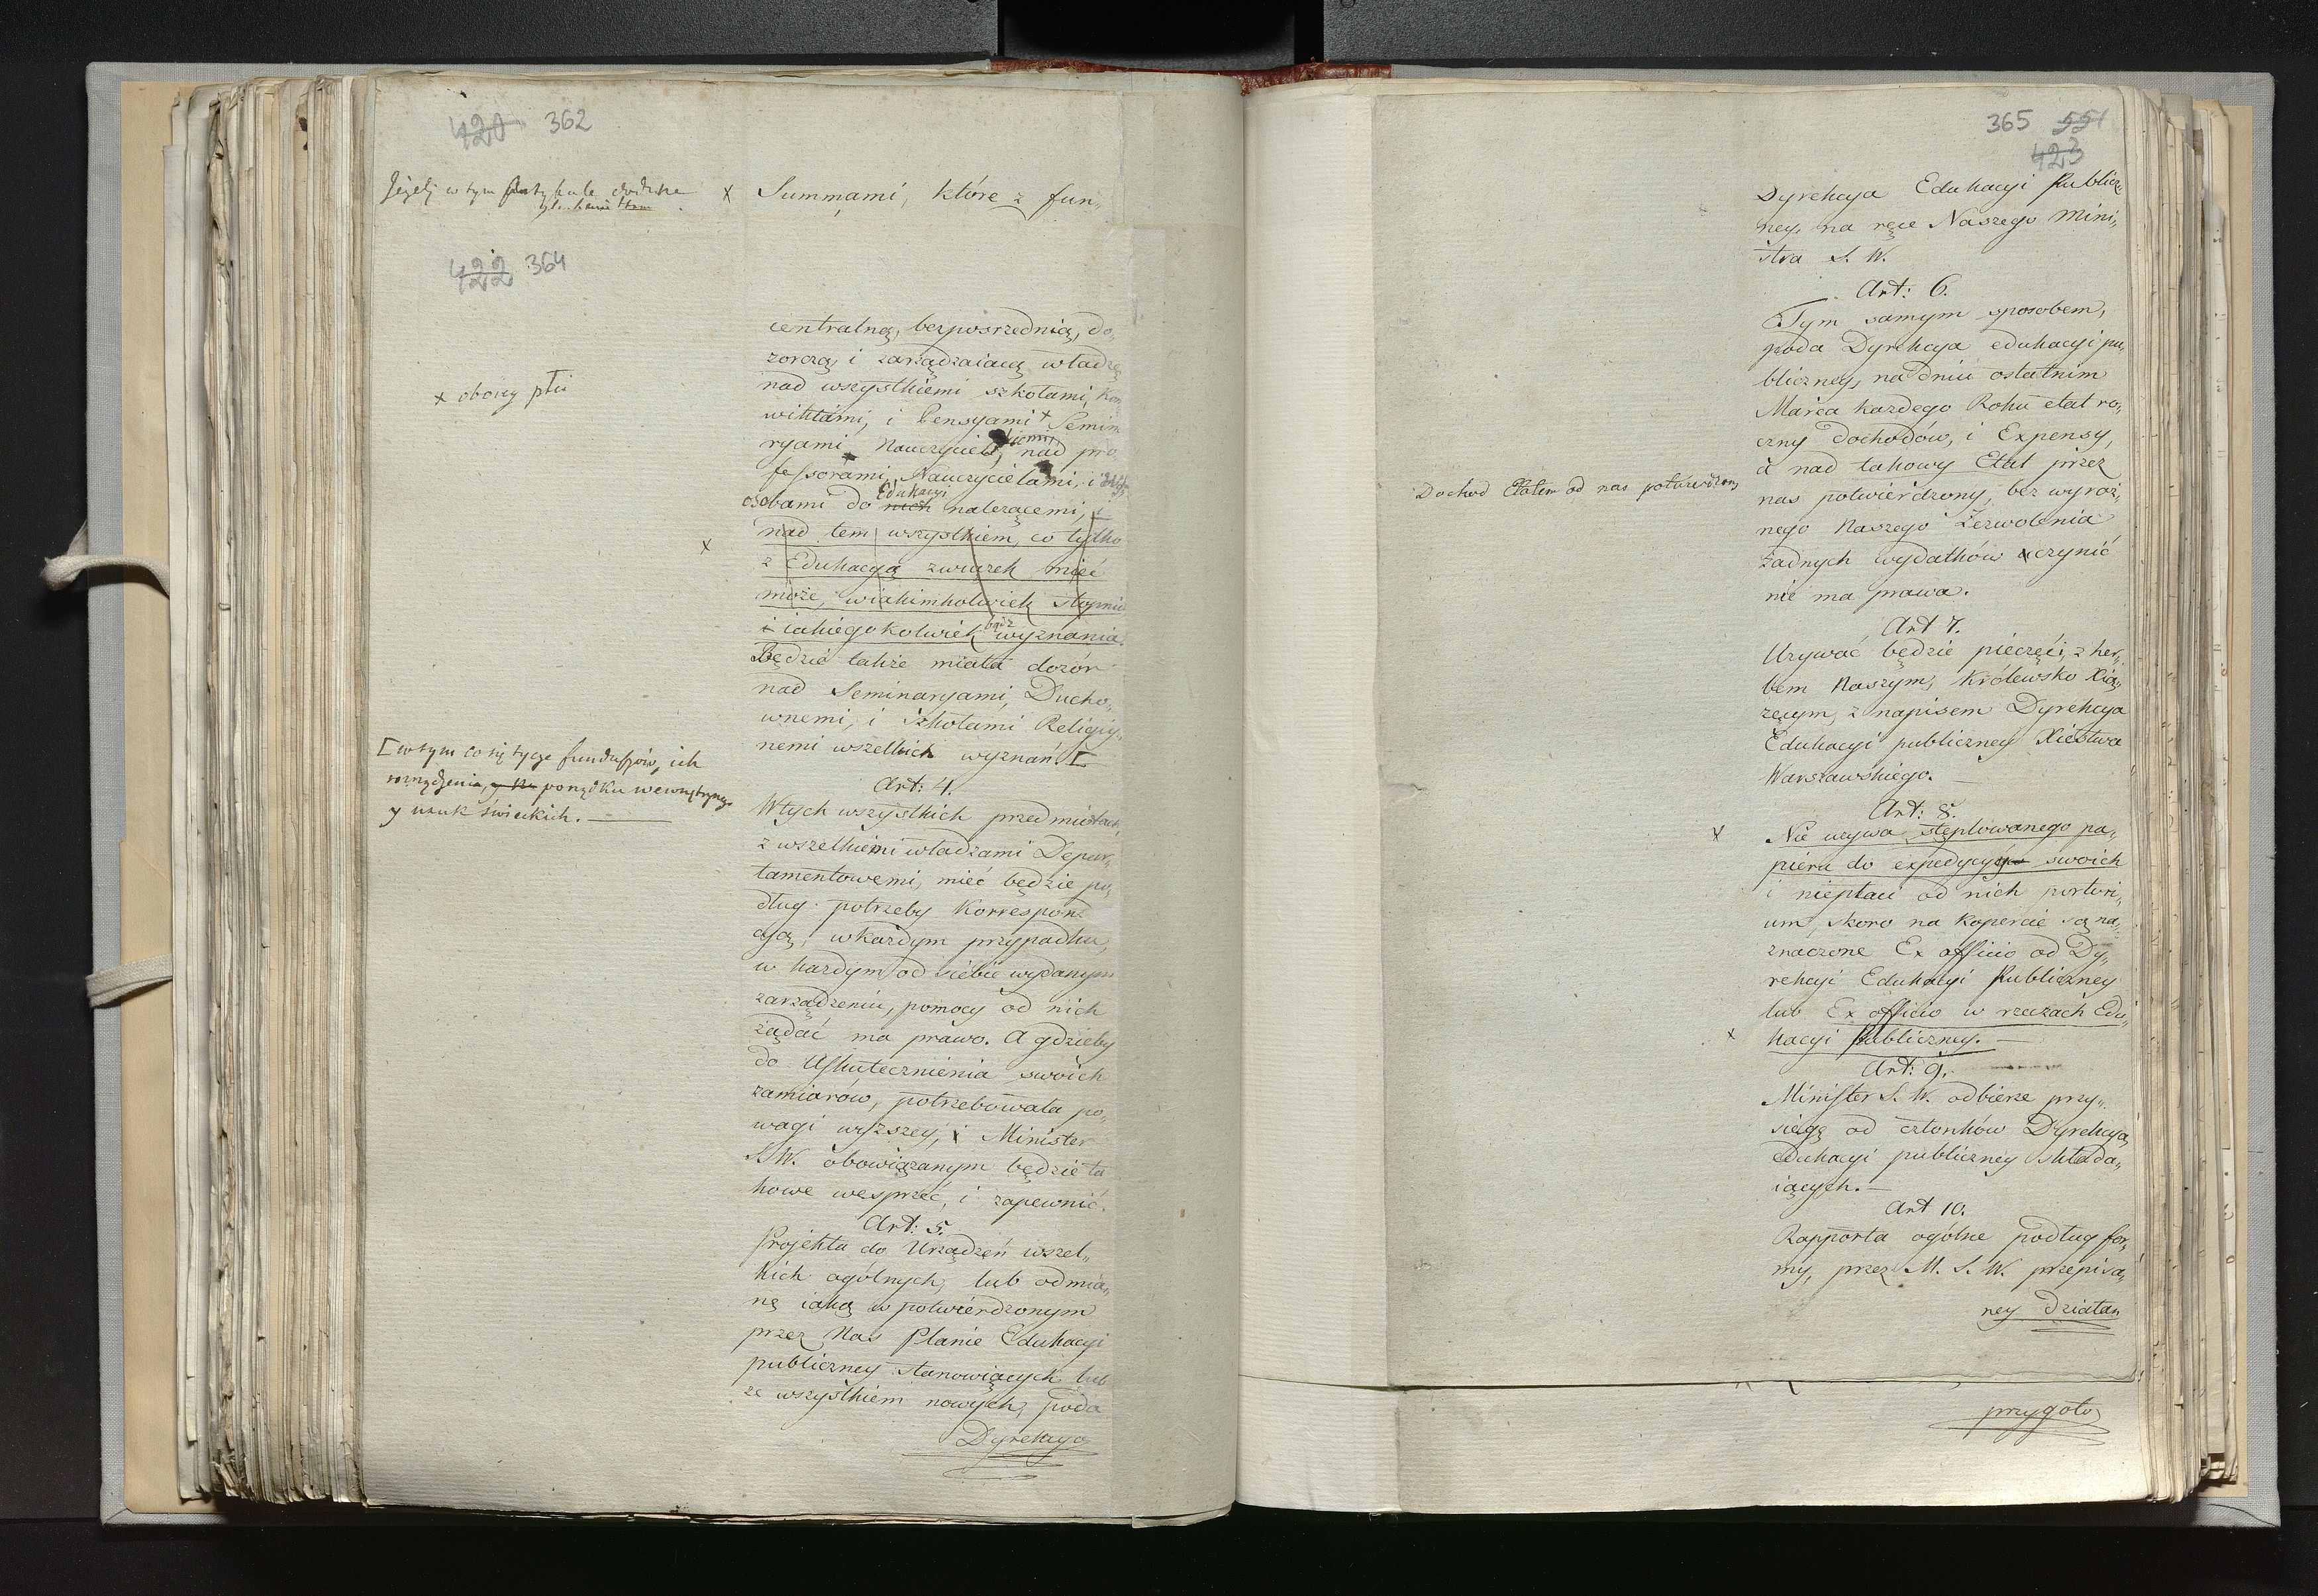 420 362
Jeżeli w tym Artykule
x Summami, które z fun„
422 364
centralną, bezposrzednią, do„
zorczą, i zarządzaiącą władzę
nad wszystkiemi szkołami, kon
wiktami, i Pensyami + Semina
x oboiey płci
ryami Nauczycielskiemi, nad pro
fessorami, Nauczycielami, i
osobami do nich Edukacyi należącemi, i
nad tem wszystkiem, co tylko
x
z Edukacyą związek mieć
może, w iakimkolwiek stopniu
i iakiegokolwiek bądź wyznania.
Będzie także miała dozór
nad Seminaryami, Ducho„
wnemi, i Szkołami Religiy„
nemi wszelkich wyznań. [
[ w tym co się tycze funduszów, ich
rozrządzenia, porządku wewnętrznego
y nauk świeckich.
Art: 4.
W tych wszystkich przedmiotach,
z wszelkiemi władzami Depar„
tamentowemi, mieć będzie po„
dług potrzeby Korrespon„
cyą, w każdym przypadku,
w każdym od siebie wydanym
zarządzeniu, pomocy od nich
żądać ma prawo. A gdzieby
do Uskutecznienia swoich
zamiarów, potrzebowała po„
wagi wyższey, i Minister
S. W. obowiązanym będzie ta
kowe wesprzeć, i zapewnić.
Art: 5.
Projekta do Urządzeń wszel„
kich ogólnych, lub odmia„
nę iaką w potwierdzonym
przez Nas Planie Edukacyi
publiczney stanowiących lub
ze wszystkiem nowych, poda
Dyrekcya
365 551
423
Dyrekcya Edukacyi Publicz„
ney, na ręce Naszego Mini„
stra S. W.
Art: 6.
Tym samym sposobem,
poda Dyrekcya edukacyi pu„
bliczney, na dniu ostatnim
Marca każdego Roku etat ro„
czny dochodów, i Expensy,
a nad takowy Etat przez
Dochod Etatem od nas potwierdzony
nas potwierdzony, bez wyraź„
nego Naszego Zezwolenia
żadnych wydatków czynić
nie ma prawa.
Art 7.
Używać będzie pieczęci, z her„
bem Naszym, Królewsko Xią„
żęcym, z napisem Dyrekcya
Edukacyi publiczney Xięstwa
Warszawskiego.
Art: 8.
x Nie używa stęplowanego pa„
pieru do expedycyi swoich
i niepłaci od nich portori„
um, skoro na kopercie są na„
znaczone Ex officio od Dy„
rekcyi Edukacyi Publiczney
lub Ex officio w rzeczach Edu„
x kacyi Publiczney.
Art: 9.
Minister S. W. odbierze przy„
sięgę od członków Dyrekcyą
edukacyi publiczney składa„
iących.
Art 10.
Rapporta ogólne podług for„
my, przez M. S. W. przepisa„
ney działan
przygoto